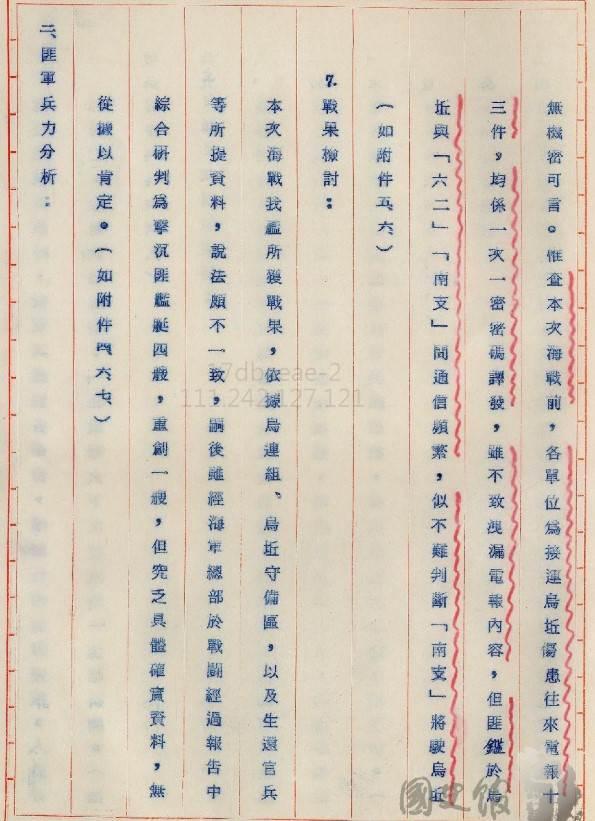 無機密可言。惟查本次海戰前，各單位為接運烏坵傷患往來電報十
三件，均係一次一密密碼譯發，雖不致洩漏電報內容，但匪鑑於烏
坵與「六二」「南支」間通信頻繁，似不難判斷「南支」將駛烏坵
（如附件五、六、）
7.戰果檢討：
本次海戰我艦所獲戰果，依據烏連組、烏坵守備區，以及生還官兵
等所提資料，說法頗不一致，嗣後雖經海軍總部於戰鬪經過報告中
綜合研判為擊沉匪艦艇四艘，重創一艘，但究乏具體確實資料，無
從據以肯定。（如附件四、六、七、）
二、匪軍兵力分析：
7dbeeae-2
111.242.127.121
國史館